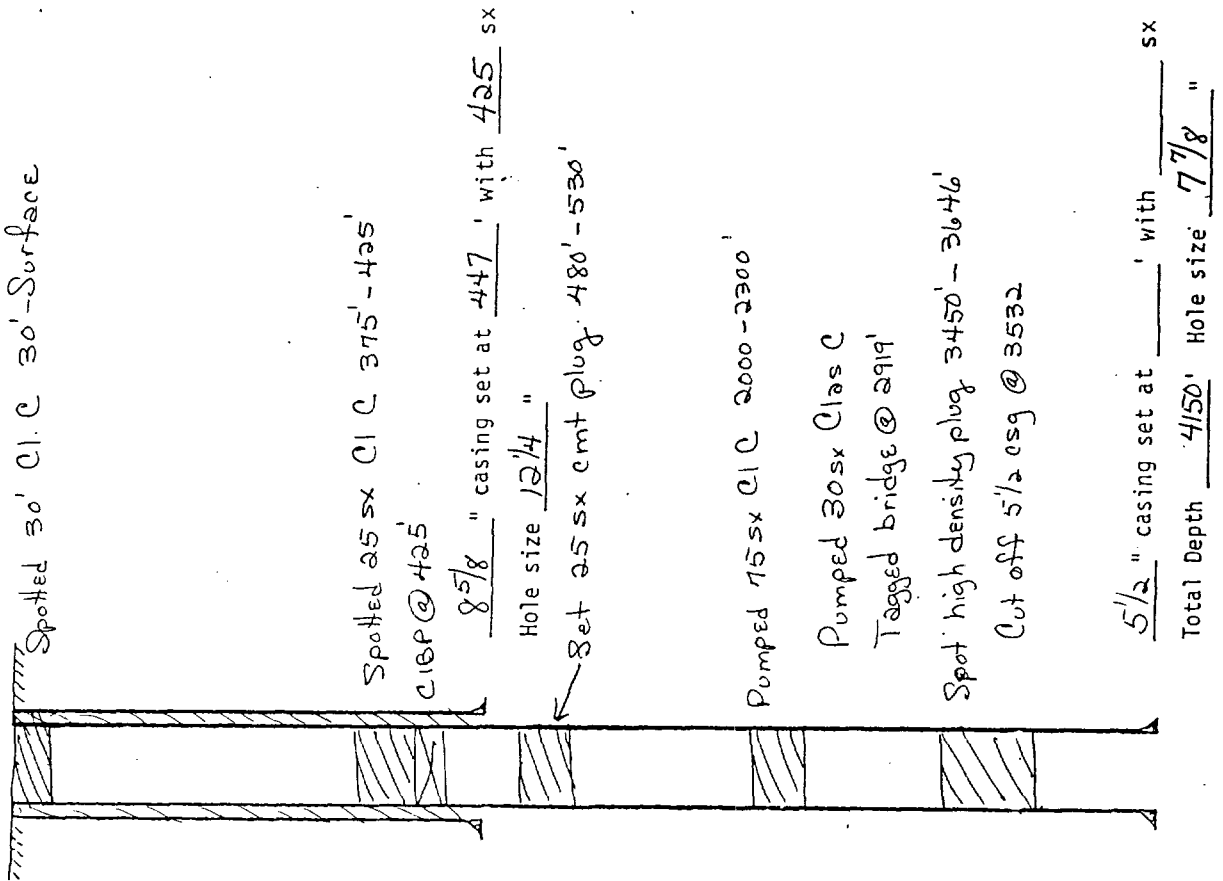 Spotted 30' Cl. C 30'-Surface
Spotted 25 sx Cl C 375'-425'
CIBP @ 425'
8 5/8 " casing set at 447 ' with 425 sx
Hole size 12 1/4 "
Set 25 sx cmt plug 480'-530'
Pumped 75 sx Cl C 2000-2300'
Pumped 30 sx Clas C
Tagged bridge @ 2919'
Spot high density plug 3450'-3646'
Cut off 5 1/2 csg @ 3532
5 1/2 " casing set at ____ ' with ____ sx
Total Depth 4150' Hole size 7 7/8 "